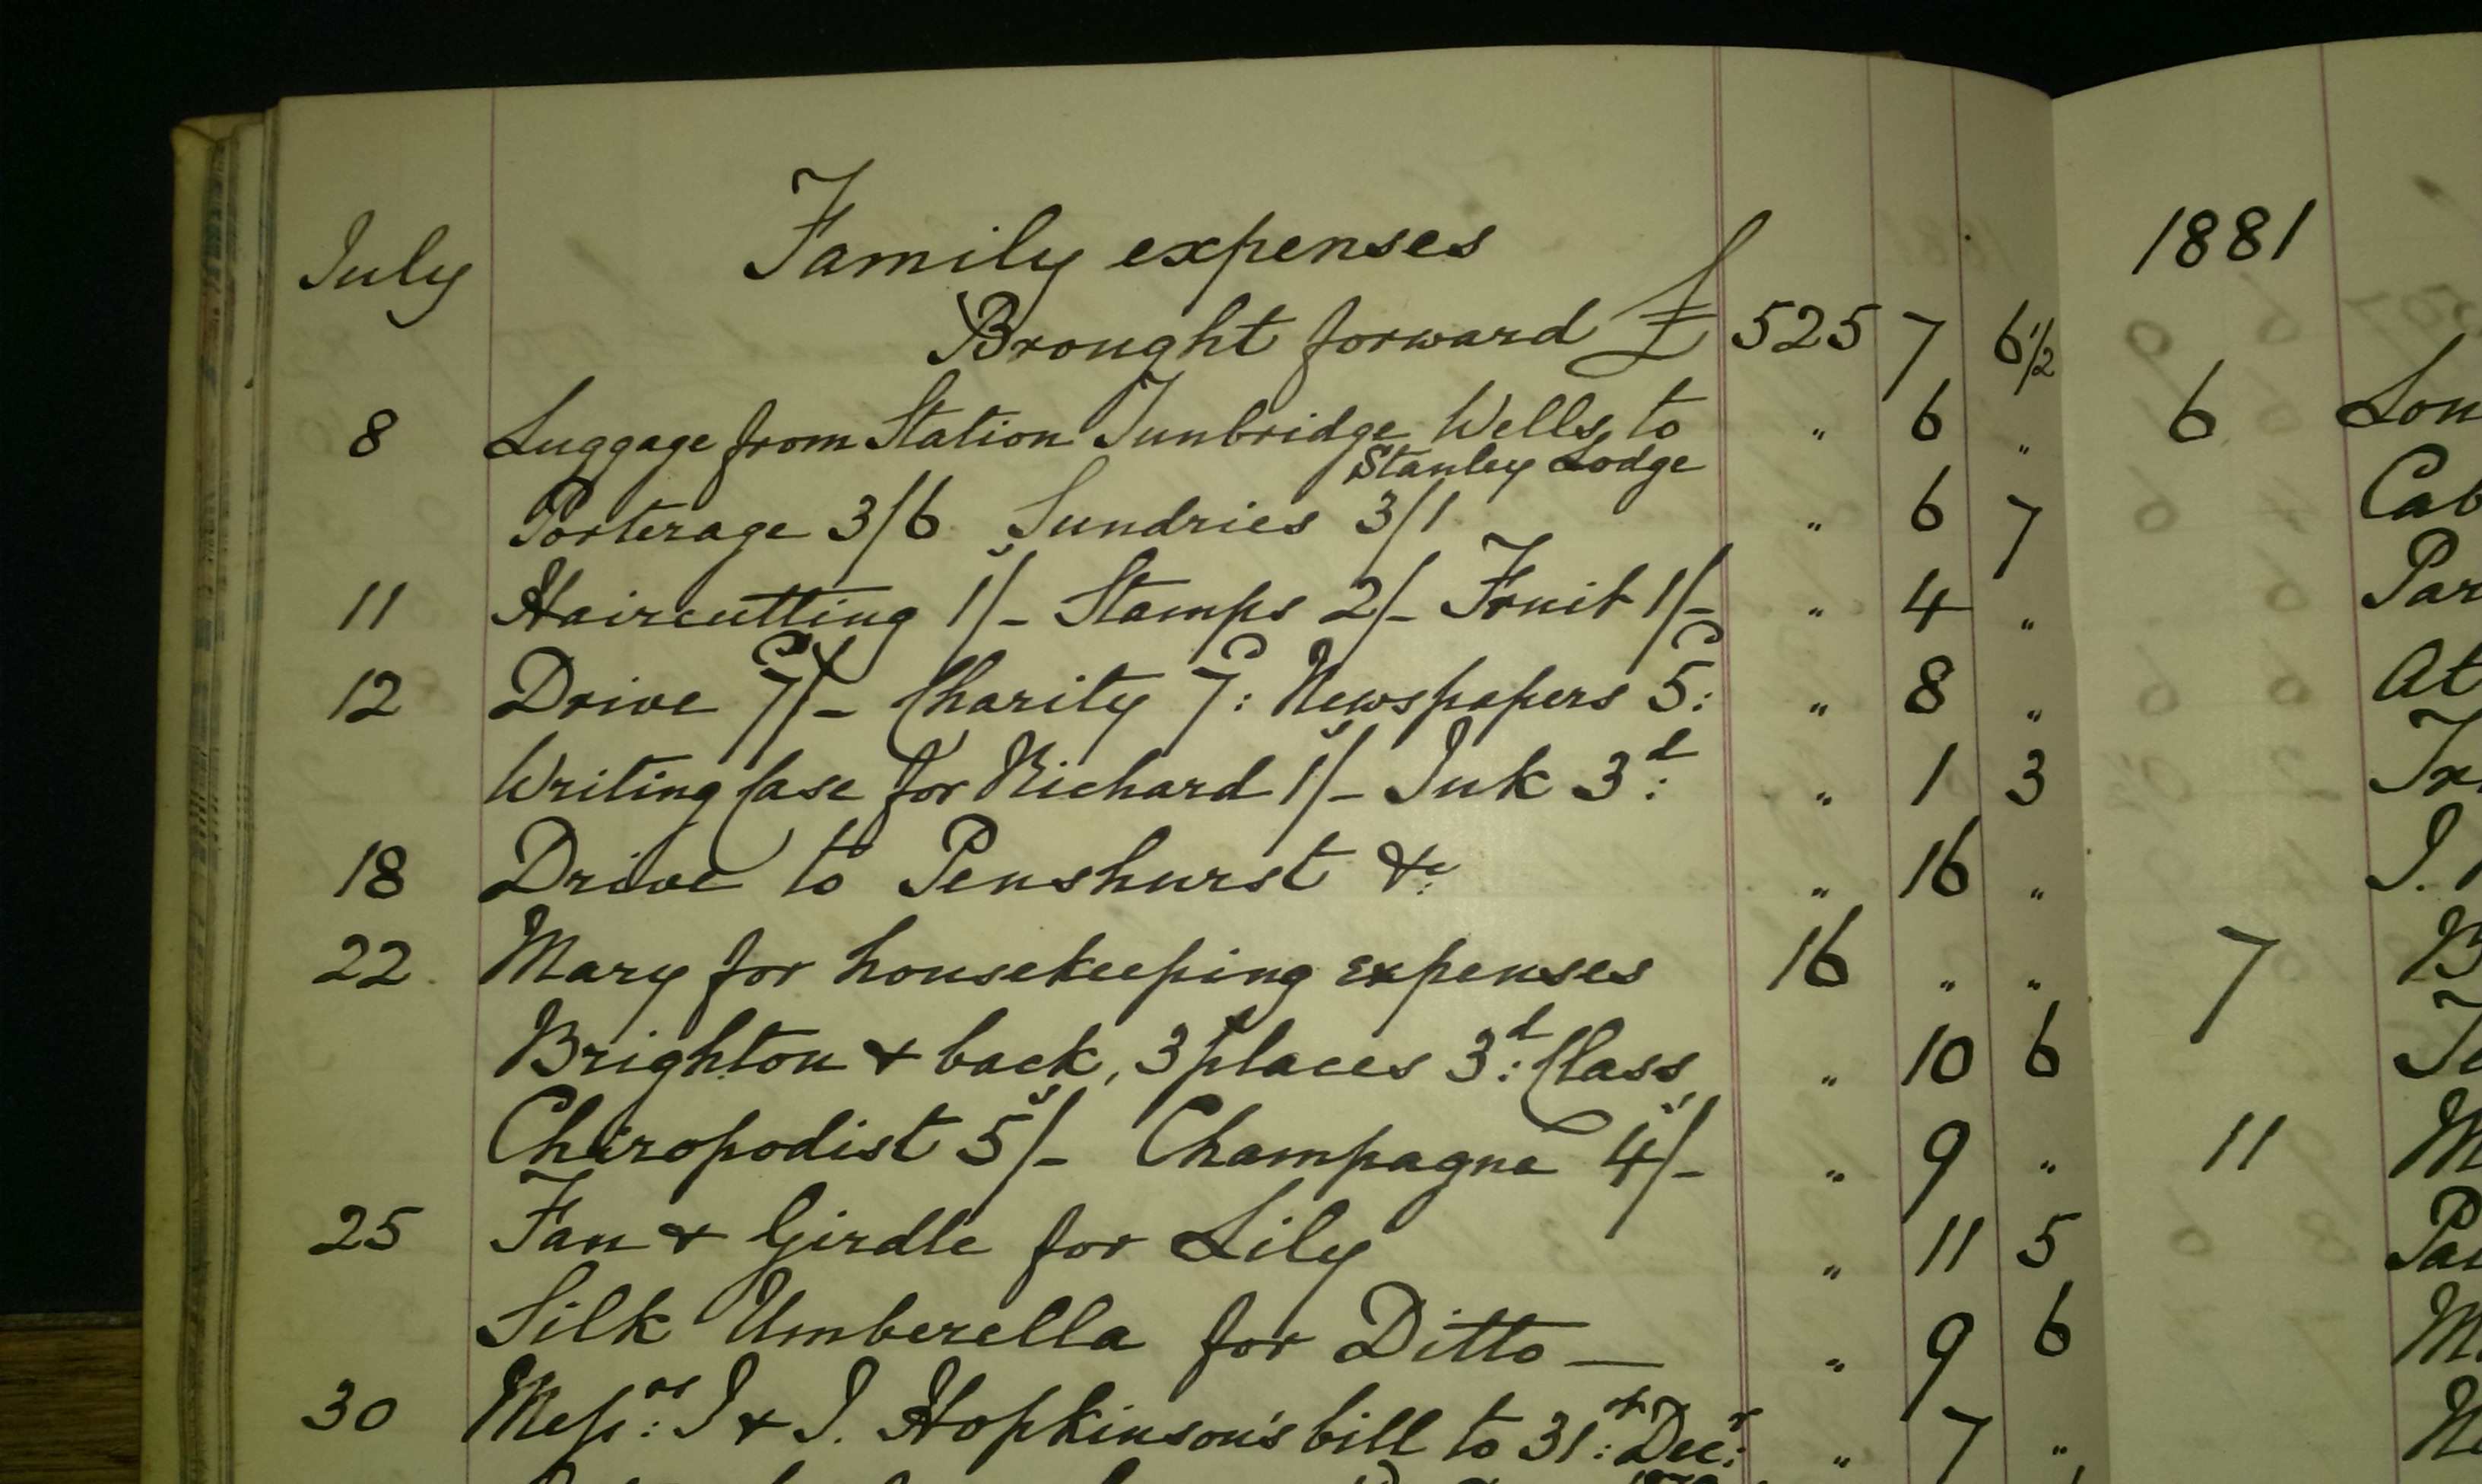 July Family expenses
Brought forward £ 525 7 6½
8 Luggage from Station Tunbridge Wells to " 6 "
Stanley Lodge
Porterage 3/6 Sundries 3/1 " 6 7
11 Haircutting 1/- Stamps 2/- Fruit 1/- " 4 "
12 Drive 7/- Charity 7d: Newspapers 5d: " 8 "
Writing Case for Richard 1/- Ink 3d: " 1 3
18 Drive to Penshurst &c: " 16 "
22 Mary for housekeeping expenses 16 " "
Brighton & back, 3 places 3d: Class, " 10 6
Chiropodist 5/- Champagne 4/- " 9 "
25 Fan & Girdle for Lily " 11 5
Silk Umberella for Ditto — " 9 6
30 Messrs: J & J. Hopkinson's bill to 31st: Decr: " 7 "
1881
6
7
11